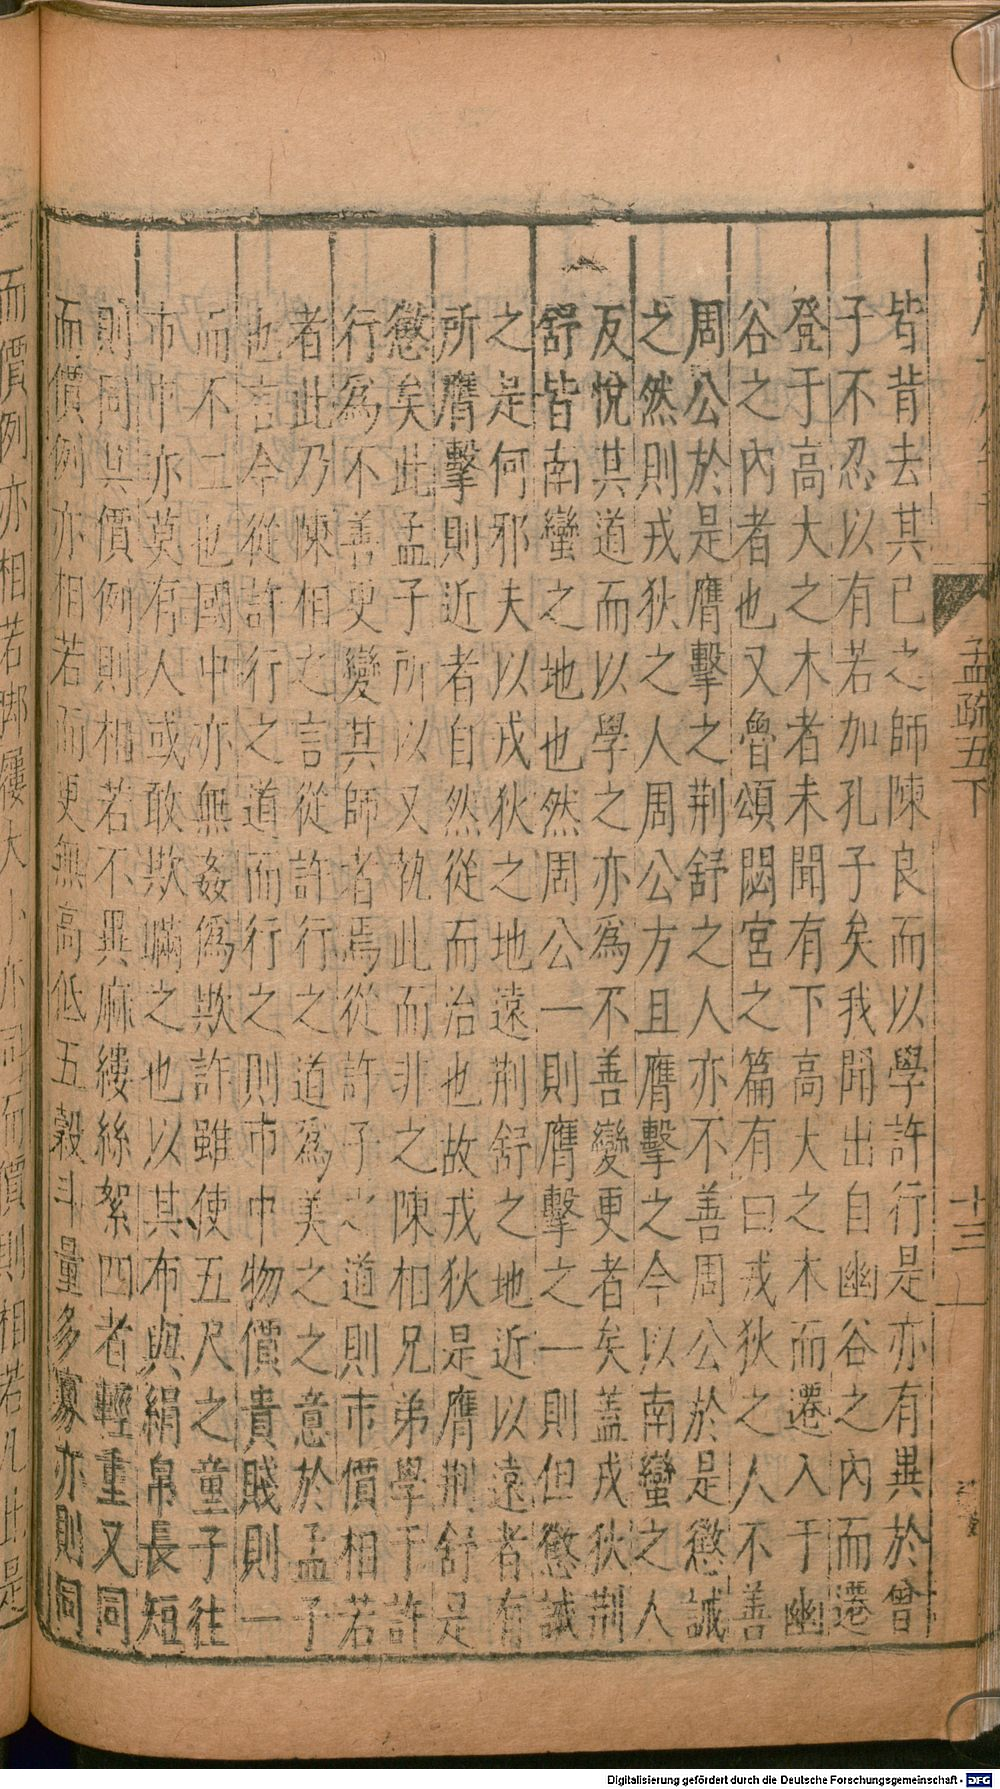 皆背去其已之師陳良而以學許行是亦有異於曾
子不忍以有若加孔子矣我聞出自幽谷之內而遷
登于高大之木者未聞有下高大之木而遷入于幽
谷之內者也又魯頌閟宮之篇有曰戎狄之人不善
周公於是膺擊之荆舒之人亦不善周公於是懲誡
之然則戎狄之人周公方且膺擊之今以南蠻之人
反悅其道而以學之亦爲不善變更者矣蓋戎狄荆
舒皆南蠻之地也然周公一則膺擊之一則但懲誡
之是何邪夫以戎狄之地遠荆舒之地近以遠者有
所膺擊則近者自然從而治也故戎狄是膺荆舒是
懲矣此孟子所以又執此而非之陳相兄弟學于許
行爲不善更變其師者焉從許子之道則市價相若
者此乃陳相之言從許行之道爲美之之意於孟子
也言今從許行之道而行之則市中物價貴賤則一
而不二也國中亦無姦爲欺許雖使五尺之童子往
市中亦莫有人或敢欺瞞之也以其布與絹帛長短
則同其價例則相若不異麻縷絲絮四者輕重又同
而價例亦相若而更無高低五穀斗量多寡亦則同
孟疏五下
十三
而價例亦相若即屨大小亦同而價則相若凡此是
Digitalisierung gefördert durch die Deutsche Forschungsgemeinschaft - DFG